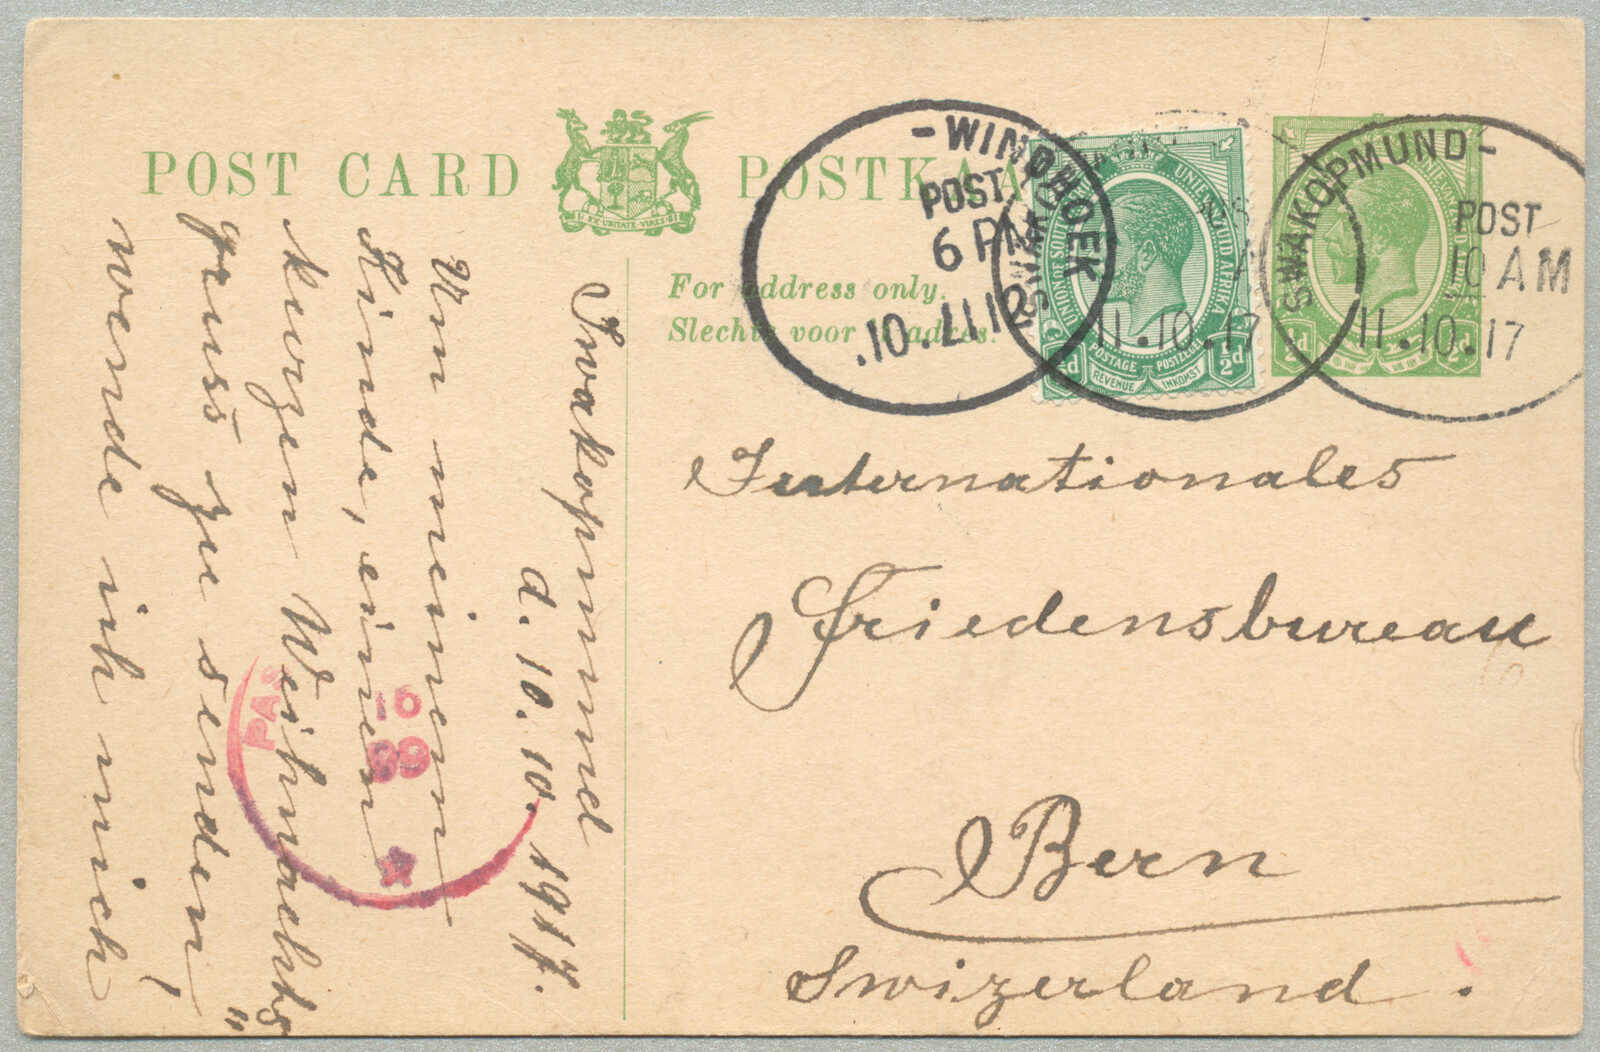 POST CARD
POSTKAA
EX UNITATE VIRES
For address only.
Slechts voor adres.
- WINDHOEK
POST
6 PM
.10.
SWAKOPMUND
11.10.17
UNION OF SOUTH
UNIE VAN ZUID AFRIKA
POSTAGE POSTZEGEL
REVENUE INKOMST
½d
½d
SWAKOPMUND -
POST
10 AM
11.10.17
½d
Swakopmund
d. 10.10.1917.
Um meinem
Kinde, einen
kurzen Weihnachts"
gruss zu senden,
wende ich mich
PAS
Internationales
Friedensbureau
Bern
Swizerland.